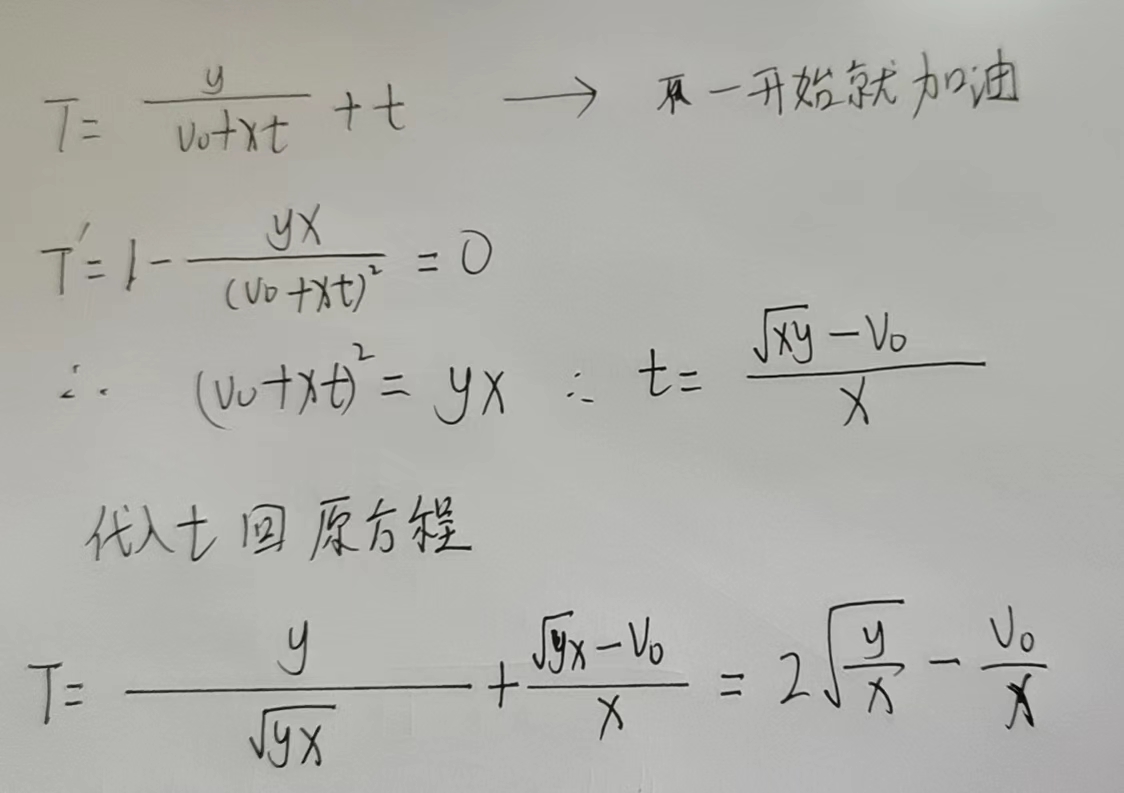 T= y/(v₀+xt) + t → 一开始就加油
T'= 1 - yx/(v₀+xt)² = 0
∴ (v₀+xt)² = yx ∴ t= (√xy - v₀)/x
代入t回原方程
T= y/√yx + (√yx - v₀)/x = 2√(y/x) - v₀/x